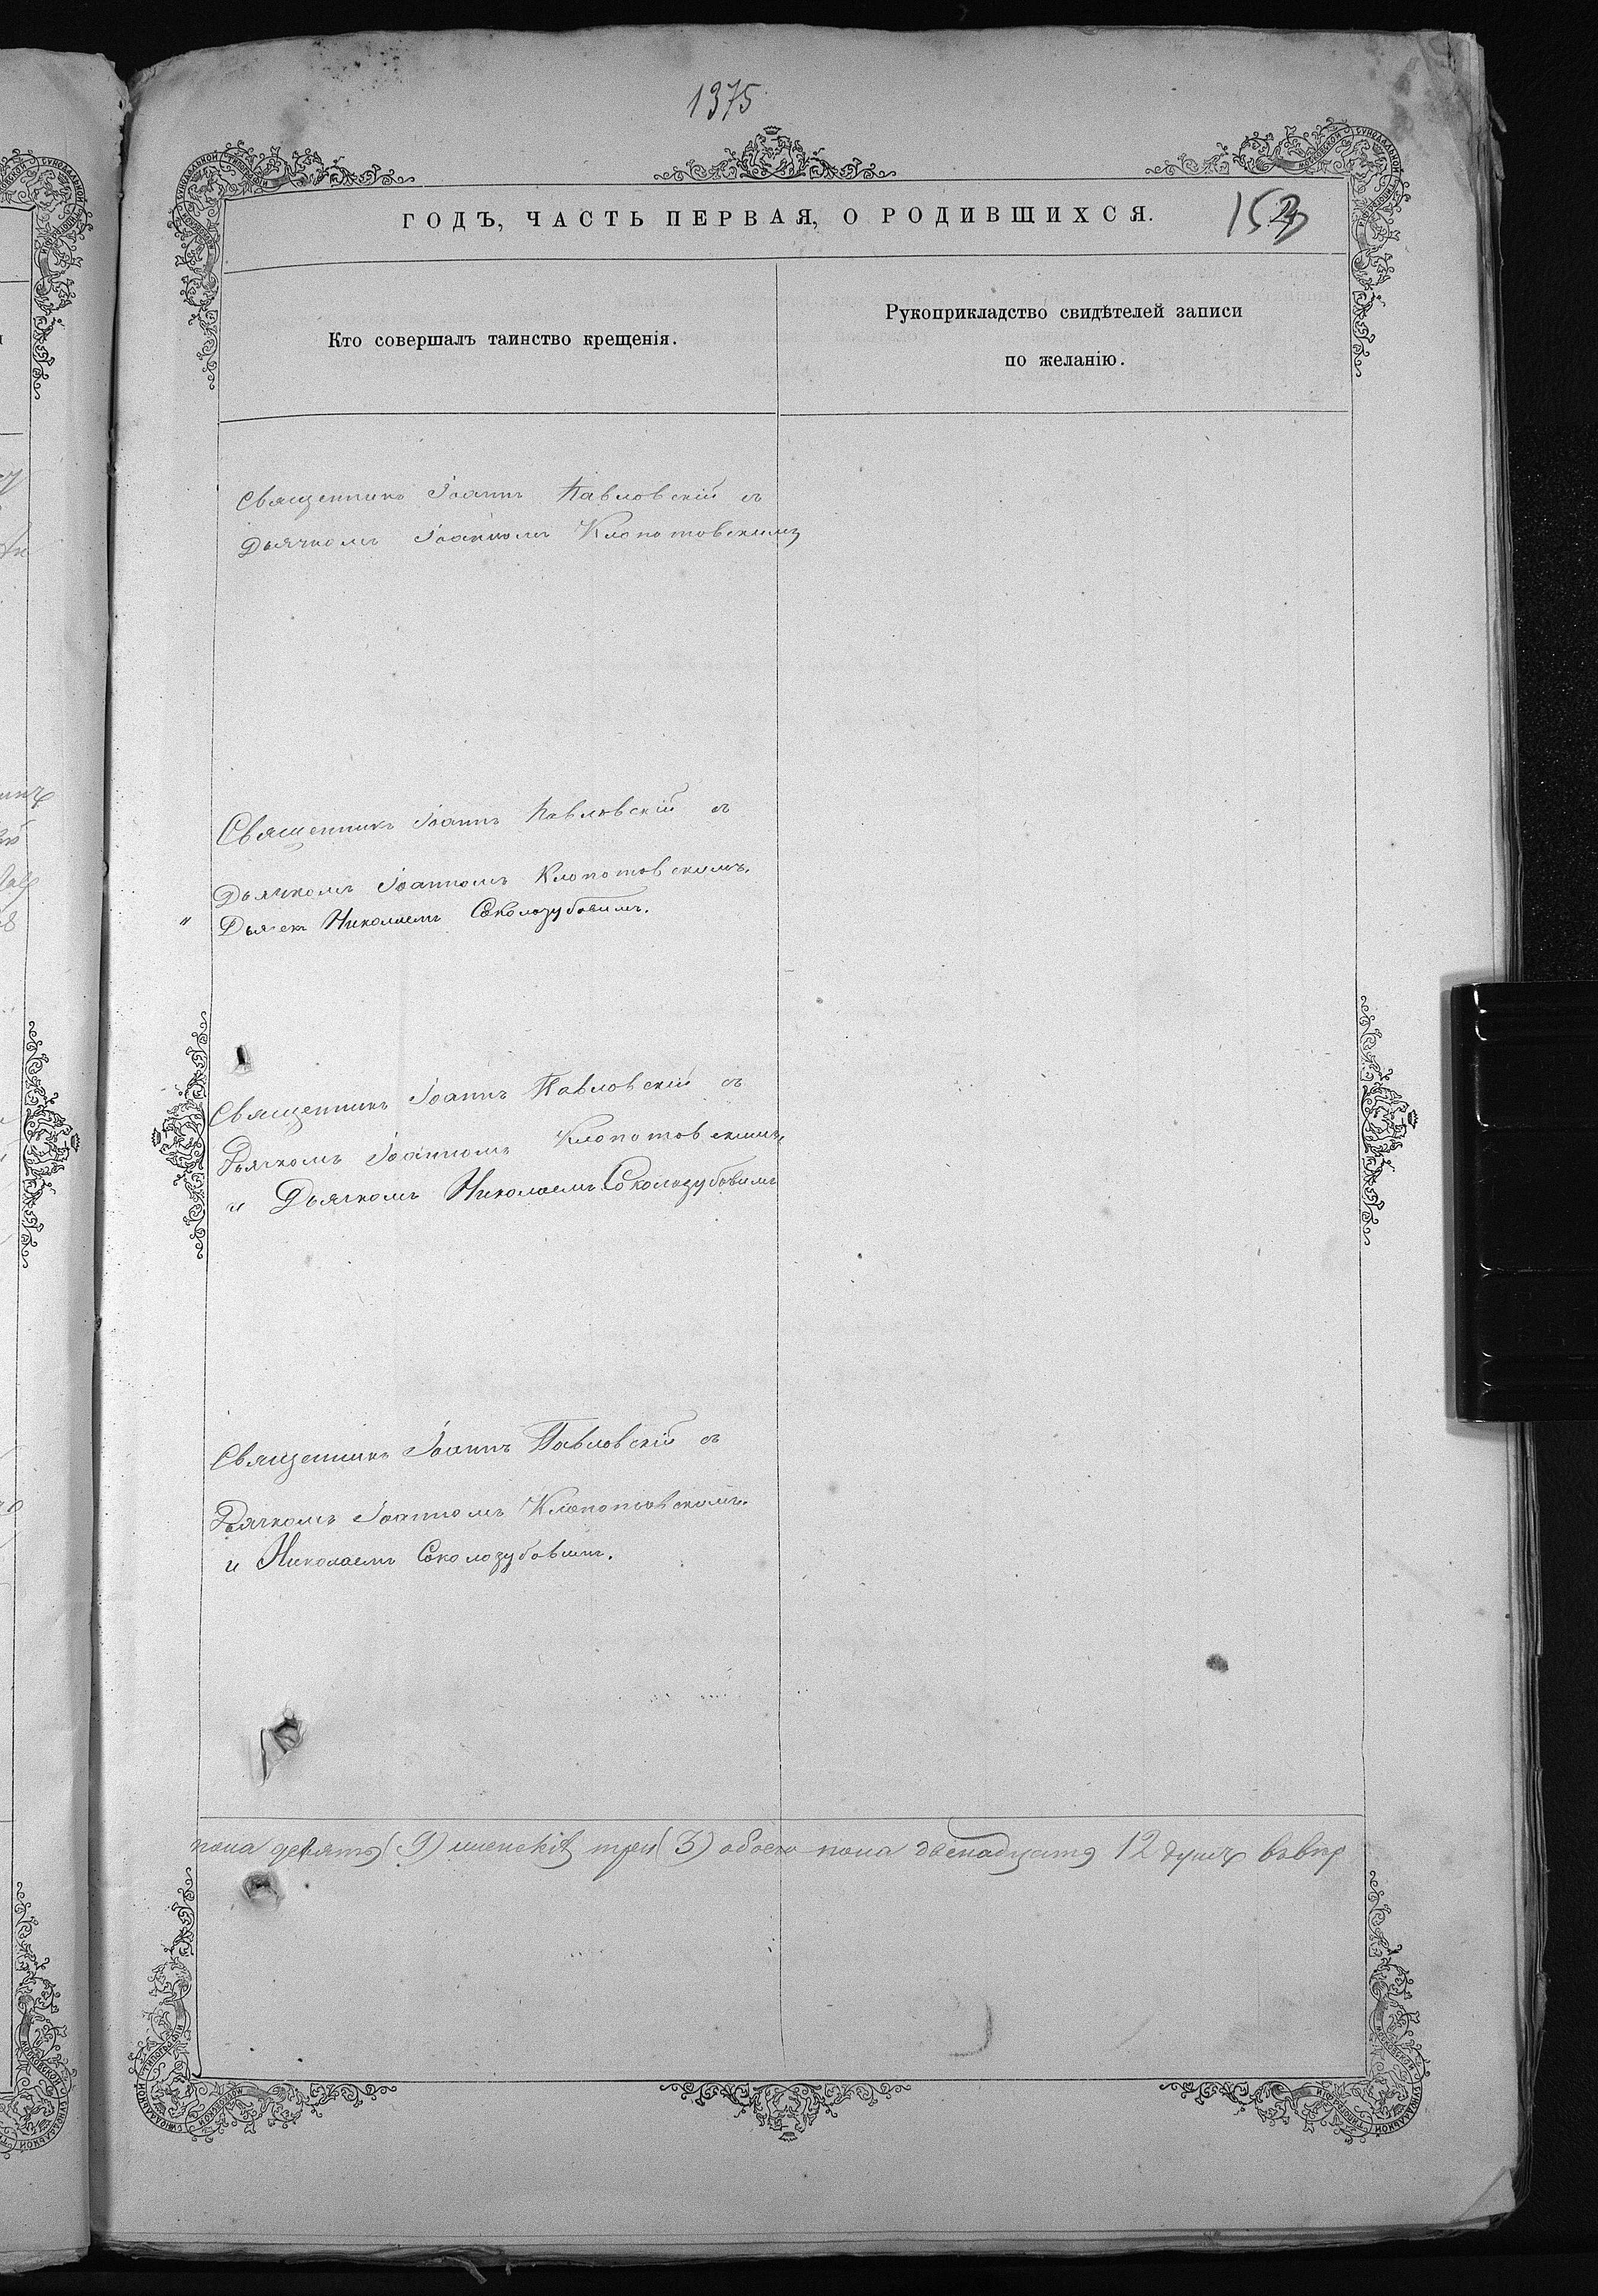 1375
ГОДЪ, ЧАСТЬ ПЕРВАЯ, О РОДИВШИХСЯ.
Кто совершалъ таинство крещенія.
Рукоприкладство свидѣтелей записи
по желанію.
Священникъ Іоаннъ Павловскій съ
Дьячкомъ Іоанномъ Клопотовскимъ
Священникъ Іоаннъ Павловскій съ
Дьячкомъ Іоанномъ Клопотовскимъ.
Николаемъ Соколозубовимъ.
Священникъ Іоаннъ Павловскій съ
Дьячкомъ Іоанномъ Клопотовскимъ
и Дьячкомъ Николаемъ Соколозубовимъ
Священникъ Іоаннъ Павловскій съ
Дьячкомъ Іоанномъ Клопотовскимъ.
и Николаемъ Соколозубовимъ.
пола девять (9) три (3) обоего пола двенадцать 12 душъ